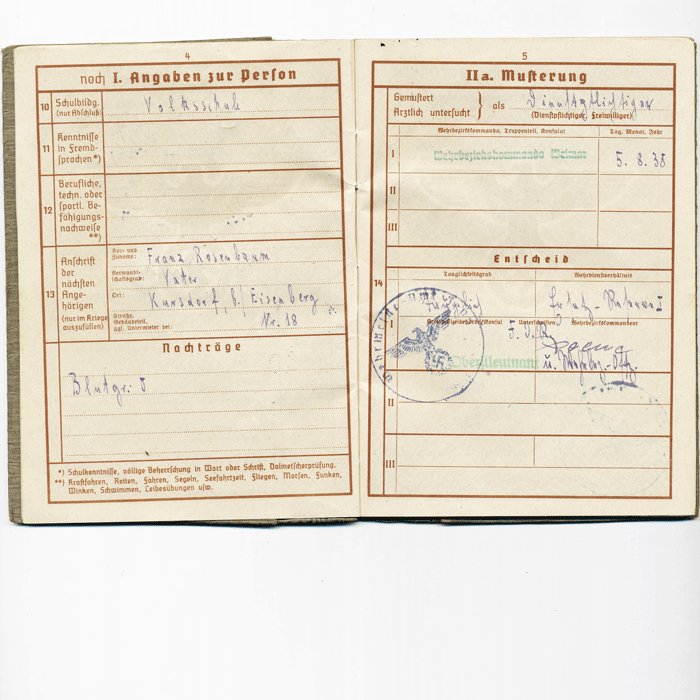 4
noch I. Angaben zur Person
10 Schulbildg. (nur Abschluß)
Volksschule
11 Kenntnisse in Fremdsprachen*)
12 Berufliche, techn. oder sportl. Befähigungsnachweise **)
13 Anschrift der nächsten Angehörigen (nur im Kriege auszufüllen)
Vor- und Zuname: Franz Rosenbaum
Verwandtschaftsgrad: Vater
Ort: Kursdorf, b/ Eisenberg
Straße, Gebäudeteil, ggf. Untermieter bei: Nr. 18
Nachträge
Blutgr:
*) Schulkenntnisse, völlige Beherrschung in Wort oder Schrift, Dolmetscherprüfung.
**) Kraftfahren, Reiten, Fahren, Segeln, Seefahrtzeit, Fliegen, Morsen, Funken,
Winken, Schwimmen, Leibesübungen usw.
5
II a. Musterung
Gemustert
Ärztlich untersucht } als Dienstpflichtiger
(Dienstpflichtiger, Freiwilliger)
Wehrbezirkskommando, Truppenteil, Konsulat
Tag, Monat, Jahr
I Wehrbezirkskommando Weimar 5. 8. 38
II
III
Entscheid
14
Tauglichkeitsgrad
Wehrdienstverhältnis
Tauglich
Ersatz-Reserve I
I
Unterschrift
Wehrbezirkskommandeur
Oberstleutnant
II
III